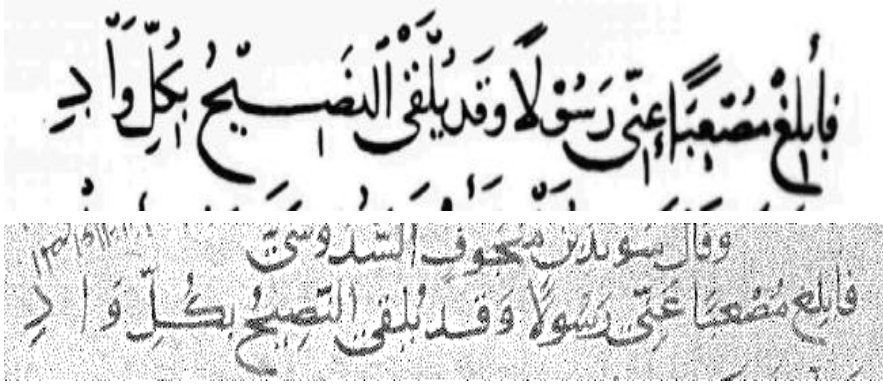 فأبلغ مصعبًا عني رسولًا وقد يلقى النصيح بكل واد
وقال سويد بن منجوف السدوسي
فابلغ مصعبا عني رسولًا وقد يلقى النصيح بكل واد